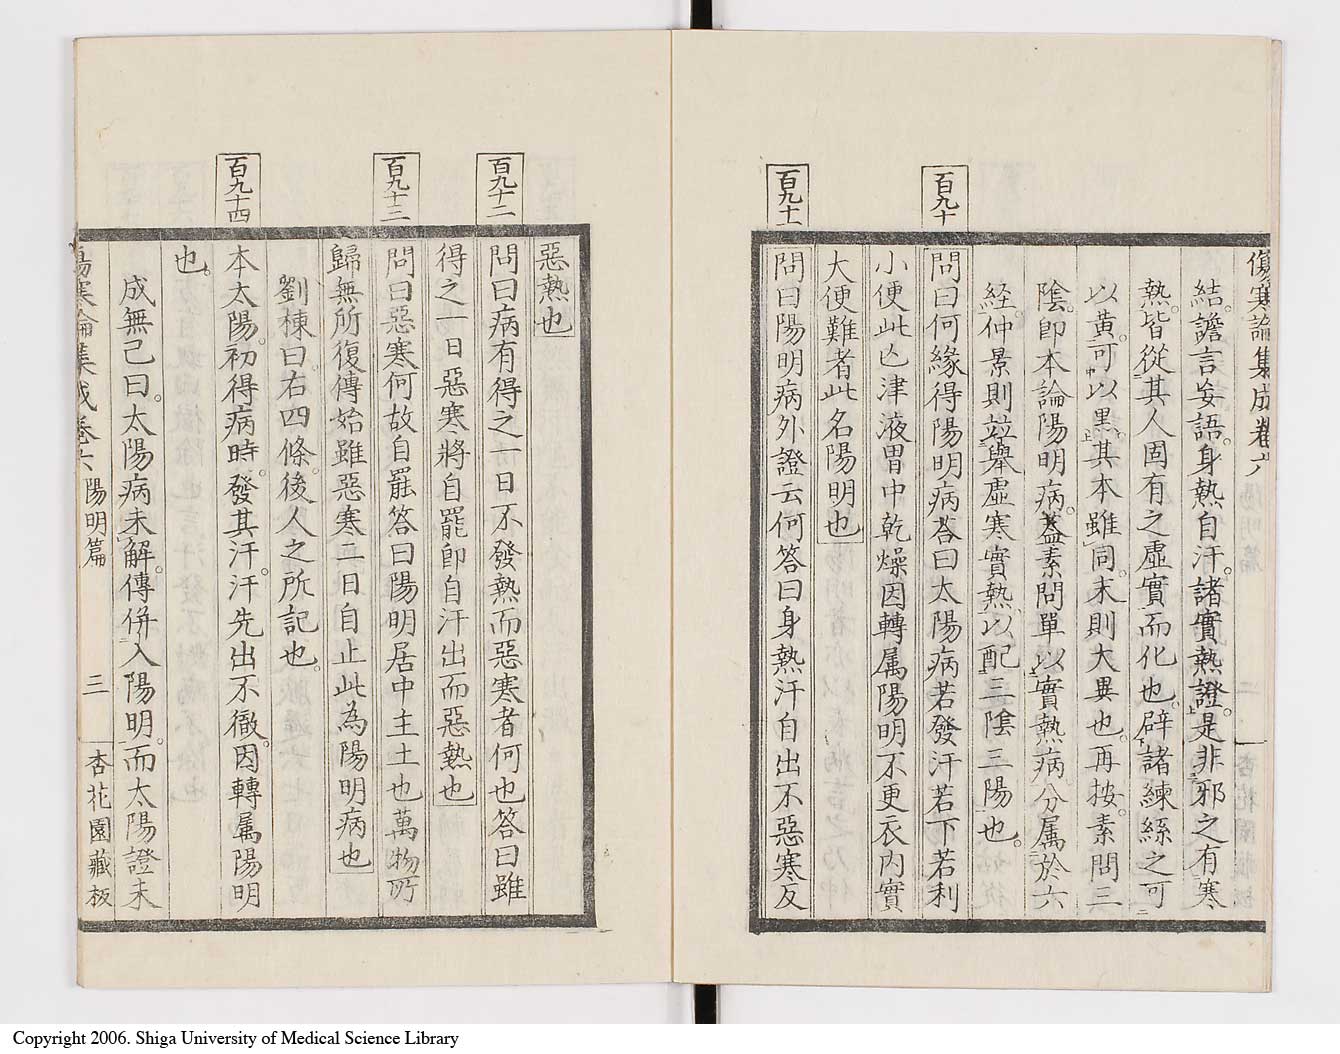 傷寒論集成卷六
結。譫言妄語。身熱自汗。諸實熱證。是非邪之有寒
熱。皆從其人固有之虛實而化也。辟諸練絲之可
以黃。可以黑。其本雖同。末則大異也。再按。素問三
陰。卽本論陽明病。葢素問單以實熱病。分属於六
経。仲景則竝舉虛寒實熱。以配三陰三陽也。
百九十
問曰何緣得陽明病荅曰太陽病若發汗若下若利
小便此亾津液胃中乾燥因轉属陽明不更衣内實
大便難者此名陽明也
百九十一
問曰陽明病外證云何答曰身熱汗自出不惡寒反
惡熱也
百九十二
問曰病有得之一日不發熱而惡寒者何也答曰雖
得之一日惡寒將自罷卽自汗出而惡熱也
百九十三
問曰惡寒何故自罷答曰陽明居中主土也萬物所
歸無所復傳始雖惡寒二日自止此為陽明病也
劉棟曰。右四條。後人之所記也。
百九十四
本太陽。初得病時。發其汗。汗先出不徹。因轉属陽明
也。
成無己曰。太陽病未解。傳併入陽明。而太陽證未
傷寒論集成卷六 陽明篇 三 杏花園藏板
Copyright 2006. Shiga University of Medical Science Library